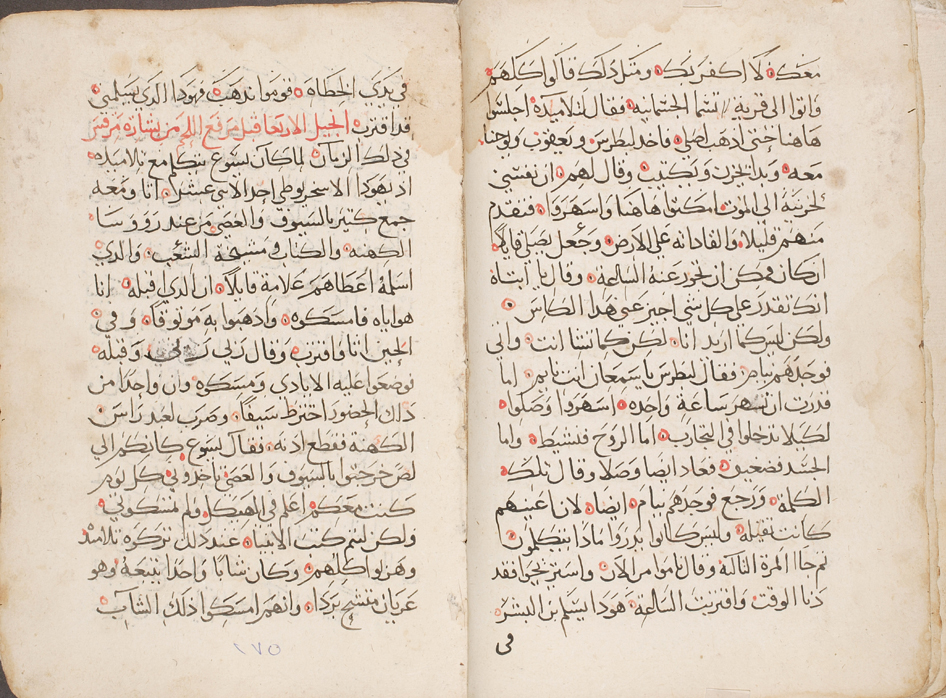 معك لا اكفر بك ومثل ذلك قالوا كلهم
واتوا الى قرية اسمها الجسمانيه فقال لتلاميده اجلسوا
هاهنا حتى ادهب اصلي فاخد لبطرس ويعقوب ويوحنا
معه وبدا يحزن ويكتيب وقال لهم ان نفسي
لحزينة الى الموت امكتوا هاهنا واسهروا فتقدم
منهم قليلا والقا داته على الارض وجعل يصلي قايلا
ان كان يمكن ان تجوز عنه الساعة وقال يا ابتاه
انك تقدر على كل شي اجيز عني هدا الكاس
ولكن ليس كما اريد انا لكن كما تشا انت واتى
فوجدهم نيام فقال لبطرس يا سمعان انت نايم اما
قدرت ان تسهر ساعة واحده اسهروا وصلوا
لكيلا تدخلوا في التجارب اما الروح فنشيط واما
الجسد فضعيف فعاد ايضا وصلا وقال تلك
الكلمة ورجع فوجدهم نيام ايضا لان اعينهم
كانت تقيله وليس كانوا يدروا مادا يتكلمون
تم جا المرة التالتة وقال ناموا من الان واستريحوا فقد
دنا الوقت واقتربت الساعه هودا يسلم بن البشر
في
في يدي الخطاه قوموا ندهب فهودا الدي يسلمني
قد اقترب انجيل الاربعا قبل مرفع اللحم من بشارة مرقس
في دلك الزمان لما كان يسوع يتكلم مع تلاميده
اد يهودا الاسخريوطي احد الاتني عشر اتا ومعه
جمع كتير بالسيوف والعصي من عند رووسا
الكهنه والكتاب ومشيخة الشعب والدي
اسلمه اعطاهم علامة قايلا ان الدي اقبله انا
هو اياه فامسكوه وادهبوا به موتوقا وفي
الحين اتا واقترب وقال ربي ربي وقبله
فوضعوا عليه الايادي ومسكوه وان واحدا من
دلك الحضور اخترط سيفا وضرب لعبد راس
الكهنة فقطع ادنه فقال يسوع كانكم الى
لص خرجتوا بالسيوف والعصي تاخدوني كل يوم
كنت معكم اعلم في الهيكل ولم تمسكوني
ولكن ليتم كتب الانبياء عند دلك تركوه تلاميده
وهربوا كلهم وكان شابا واحدا يتبعه وهو
عريان متشح بردا وانهم امسكوا دلك الشاب
١٧٥